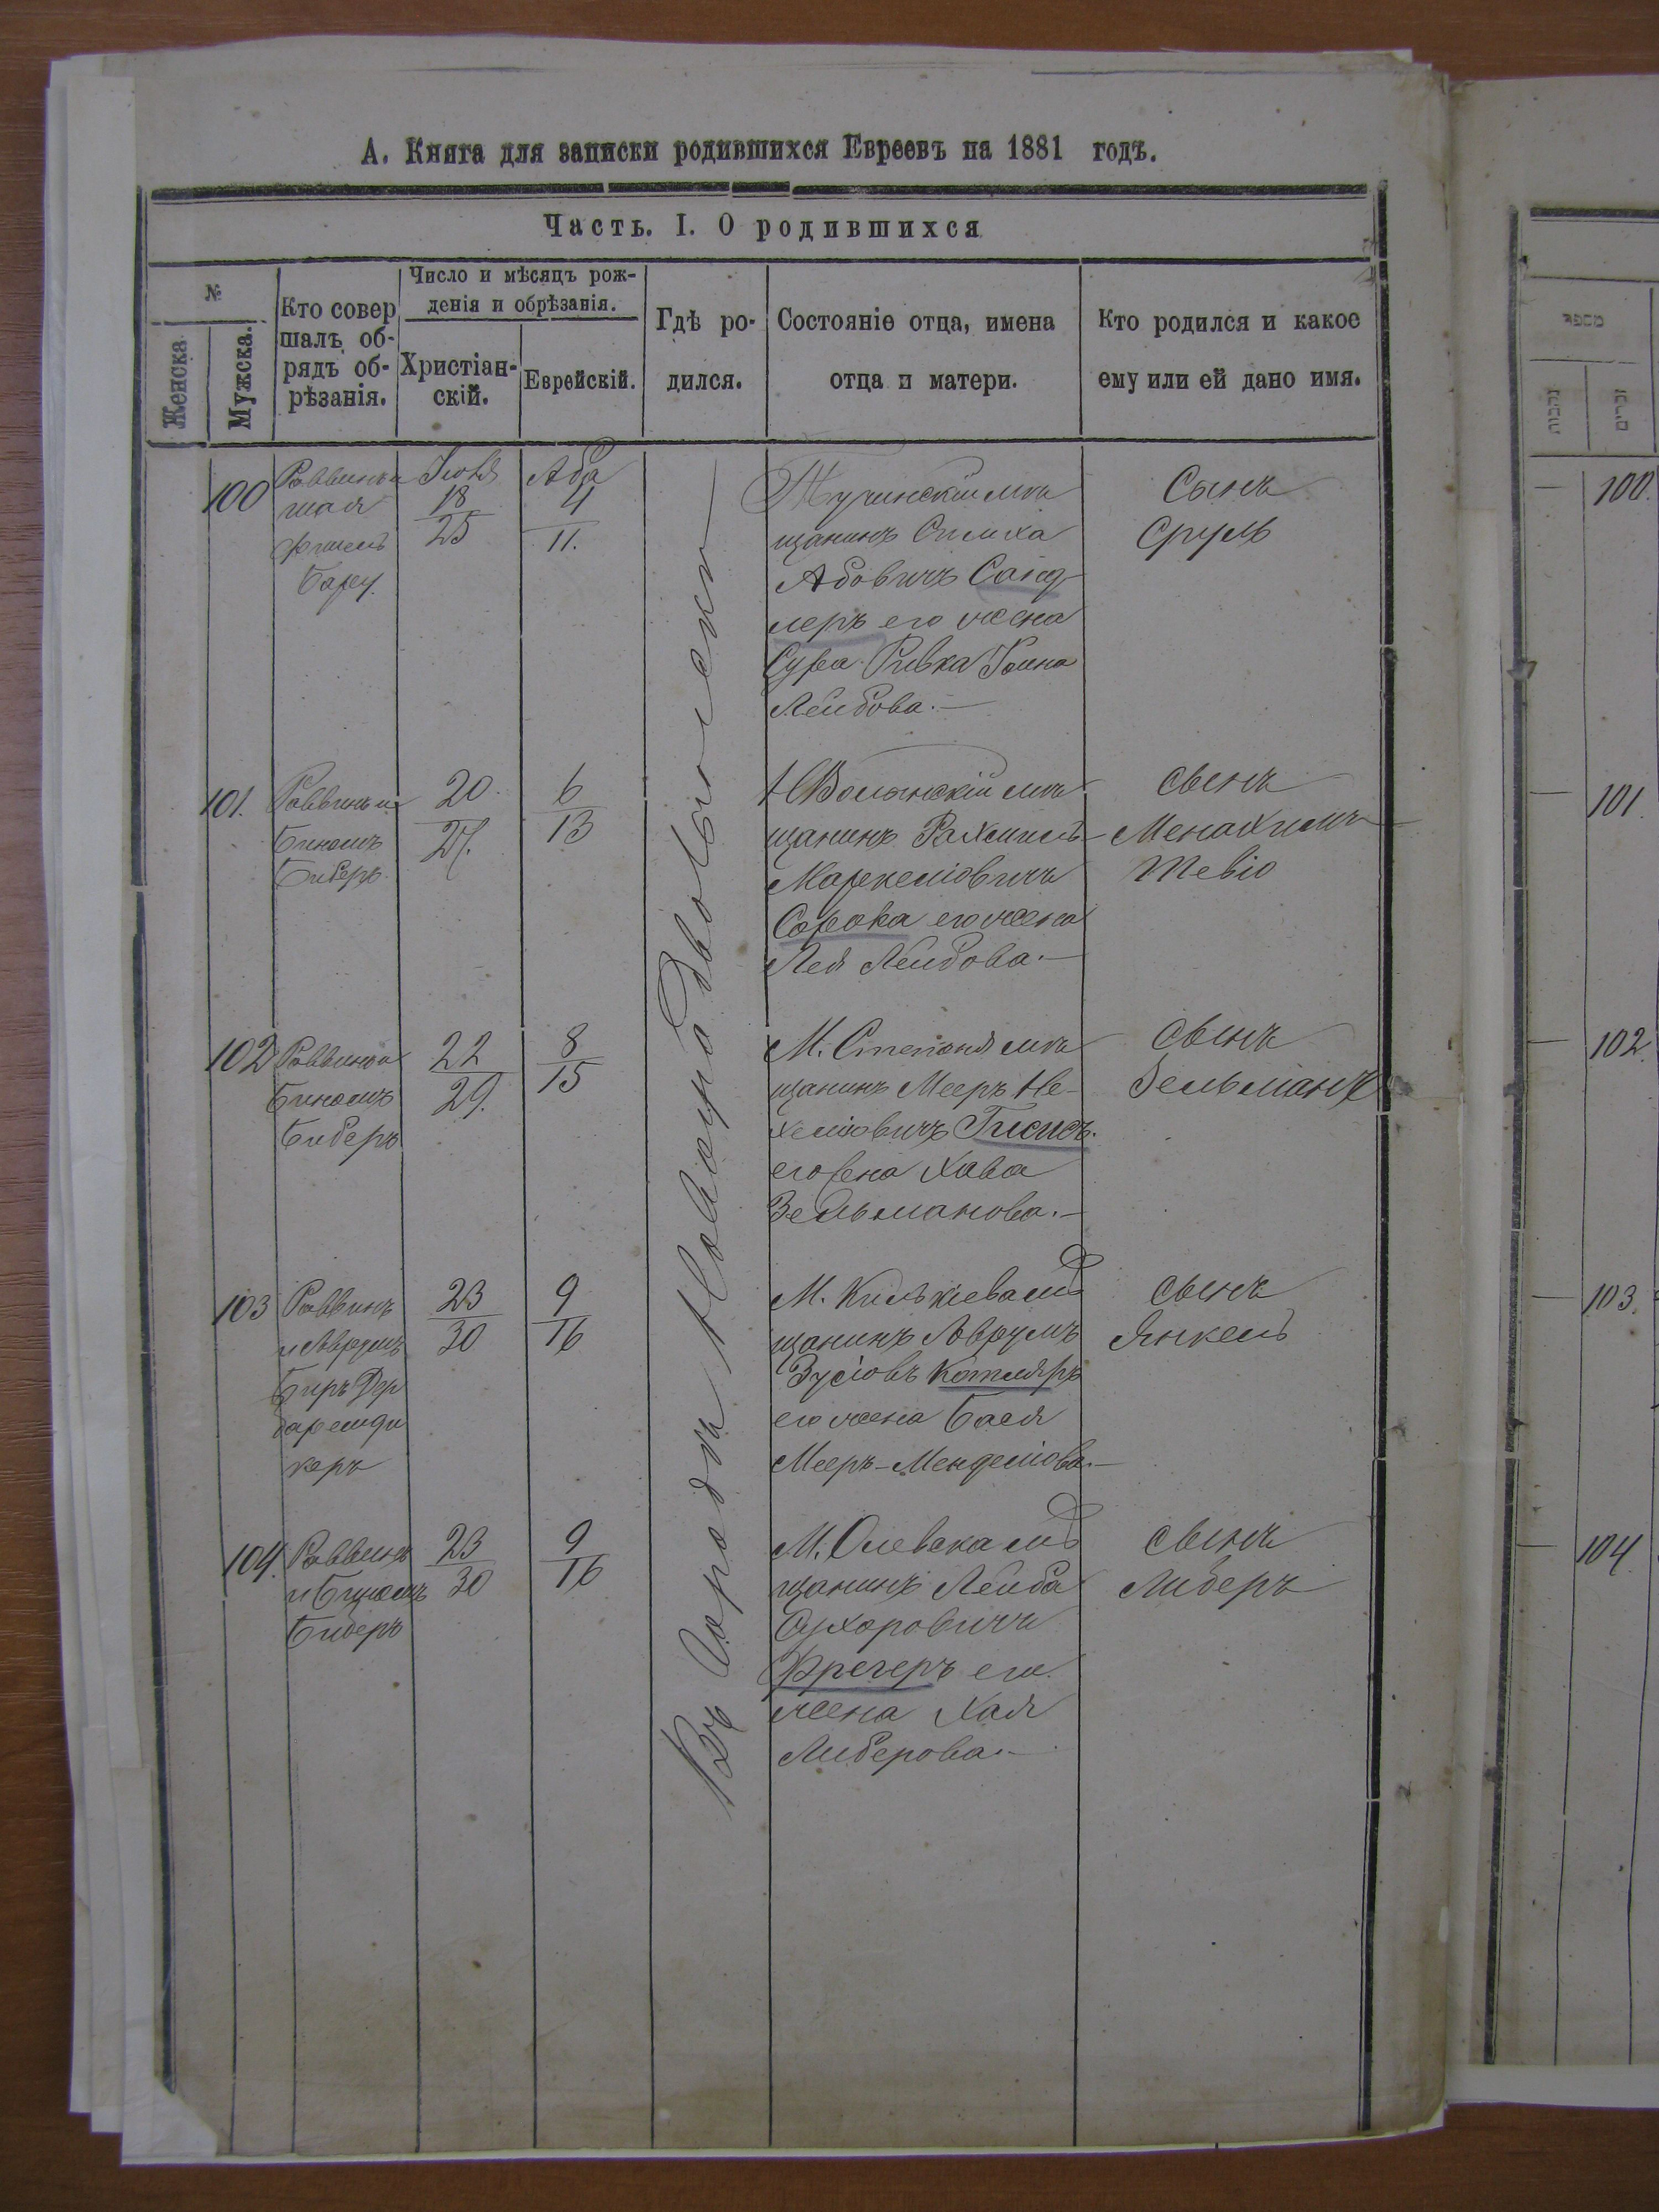 А. Книга для записки родившихся Евреевъ на 1881 годъ.
Часть. I. О родившихся
№
Женска.
Мужска.
Кто совер
шалъ об-
рядъ об-
рѣзанія.
Число и мѣсяцъ рож-
денія и обрѣзанія.
Христіан-
скій.
Еврейскій.
Гдѣ ро-
дился.
Состояніе отца, имена
отца и матери.
Кто родился и какое
ему или ей дано имя.
Въ Городѣ Новоградволынскѣ
100
Раввинъ и
Фишель
Іюля
18
25
Ава
4
11.
Тучинскій мѣ
щанинъ
Абовичъ Санд-
леръ его жена
Сура Ривка
Лейбова.—
Сынъ
Сруль
101.
Раввинъ и
Биномъ
Биберъ
20
27.
6
13
НВолынскій мѣ
щанинъ Рахмиель
Сорока его жена
Лея Лейбова.—
Сынъ
Менахимъ
Тевіо
102
Раввинъ и
Биномъ
Биберъ
22
29.
8
15
М. Степаня мѣ
щанинъ Мееръ Не-
хеміовичъ
его жена Хава
Зельманова.—
Сынъ
Зельманъ
103
Раввинъ
и Аврумъ
Беръ Дор
керъ
23
30
9
16
М. Килькіева мѣ
щанинъ Аврумъ
Зусіовъ Котляръ
его жена Бася
Мееръ-Менделіова.—
Сынъ
Янкель
104.
Раввинъ
и Биномъ
Биберъ
23
30
9
16
М. Олевска мѣ
щанинъ Лейба
Сухоровичъ
Крегеръ его
жена Хая
Либерова.—
Сынъ
Либеръ
מספר
נקבות
זכרים
100.
101.
102.
103.
104